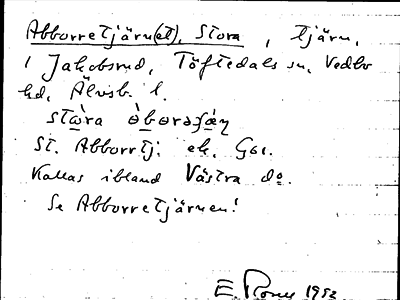 Abborretjärn(et), Stora, tjärn,
i Jakobsrud, Töftedals sn, Vedbo
hd, Älvsb. l.
St. Abborrtj. ek. Gsk.
Kallas ibland Västra do.
Se Abborretjärnen!
1953